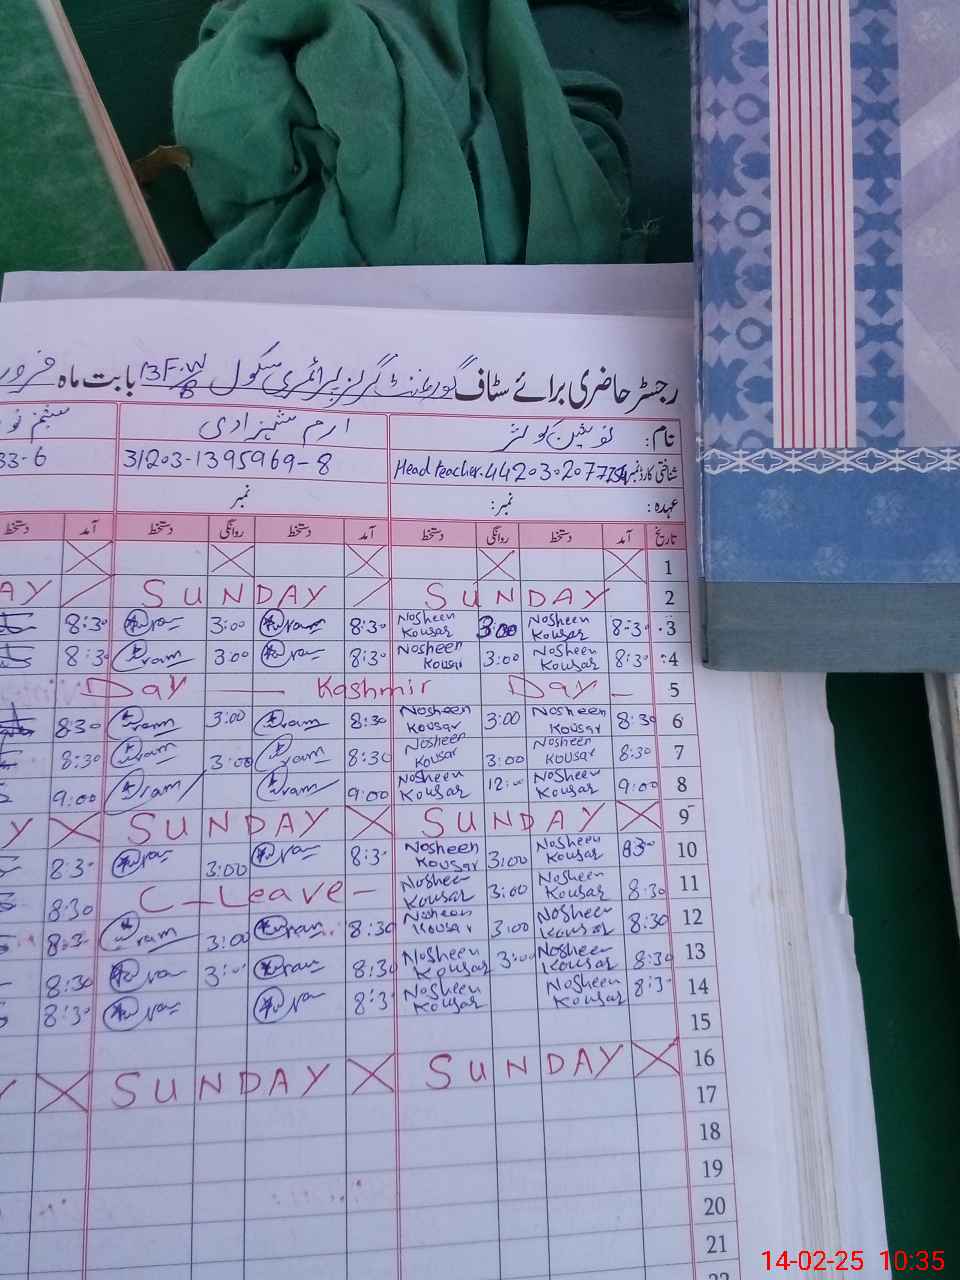 رجسٹر حاضری برائے سٹاف گورنمنٹ گرلز پرائمری سکول 13F.W/B بابت ماہ
نام: نوشین کوثر ارم شہزادی
شناختی کارڈ نمبر Head teacher. 31203-1395969-8 33-6
عہدہ: نمبر: نمبر
تاریخ آمد دستخط روانگی دستخط آمد دستخط روانگی دستخط آمد دستخط
1
2 SUNDAY SUNDAY AY
3 8:30 Nosheen Kousar 3:00 Nosheen Kousar 8:30 Iram 3:00 Iram 8:30
4 8:30 Nosheen Kousar 3:00 Nosheen Kousar 8:30 Iram 3:00 Iram 8:30
5 Day Kashmir Day
6 8:30 Nosheen Kousar 3:00 Nosheen Kousar 8:30 Iram 3:00 Iram 8:30
7 8:30 Nosheen Kousar 3:00 Nosheen Kousar 8:30 Iram 3:00 Iram 8:30
8 9:00 Nosheen Kousar 12:00 Nosheen Kousar 9:00 Iram Iram 9:00
9 SUNDAY SUNDAY Y
10 830 Nosheen Kousar 3:00 Nosheen Kousar 8:30 Iram 3:00 Iram 8:30
11 8:30 Nosheen Kousar 3:00 Nosheen Kousar C-Leave- 8:30
12 8:30 Nosheen Kousar 3:00 Nosheen Kousar 8:30 Iram 3:00 Iram 8:30
13 8:30 Nosheen Kousar 3:00 Nosheen Kousar 8:30 Iram 3:00 Iram 8:30
14 8:30 Nosheen Kousar Nosheen Kousar 8:30 Iram Iram 8:30
15
16 SUNDAY SUNDAY Y
17
18
19
20
21
14-02-25 10:35